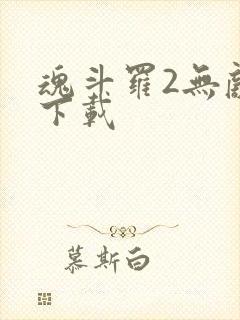 魂斗羅2無
下載
慕斯白